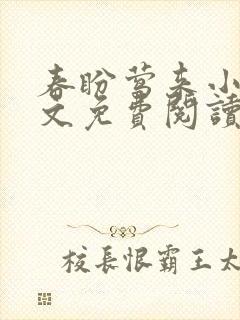 春盼莺来小
文免費閱讀
校長恨霸王太